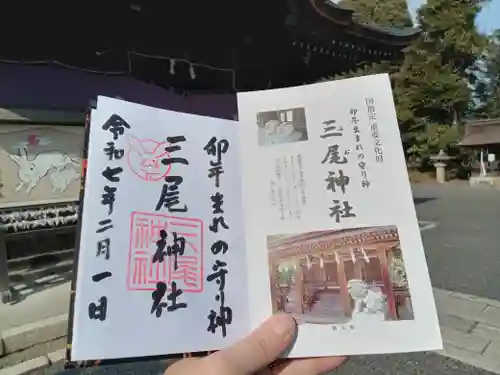 卯年生まれの守り神
三尾神社
三尾神社
令和七年二月一日
国指定 重要文化財
卯年生まれの守り神
三尾神社